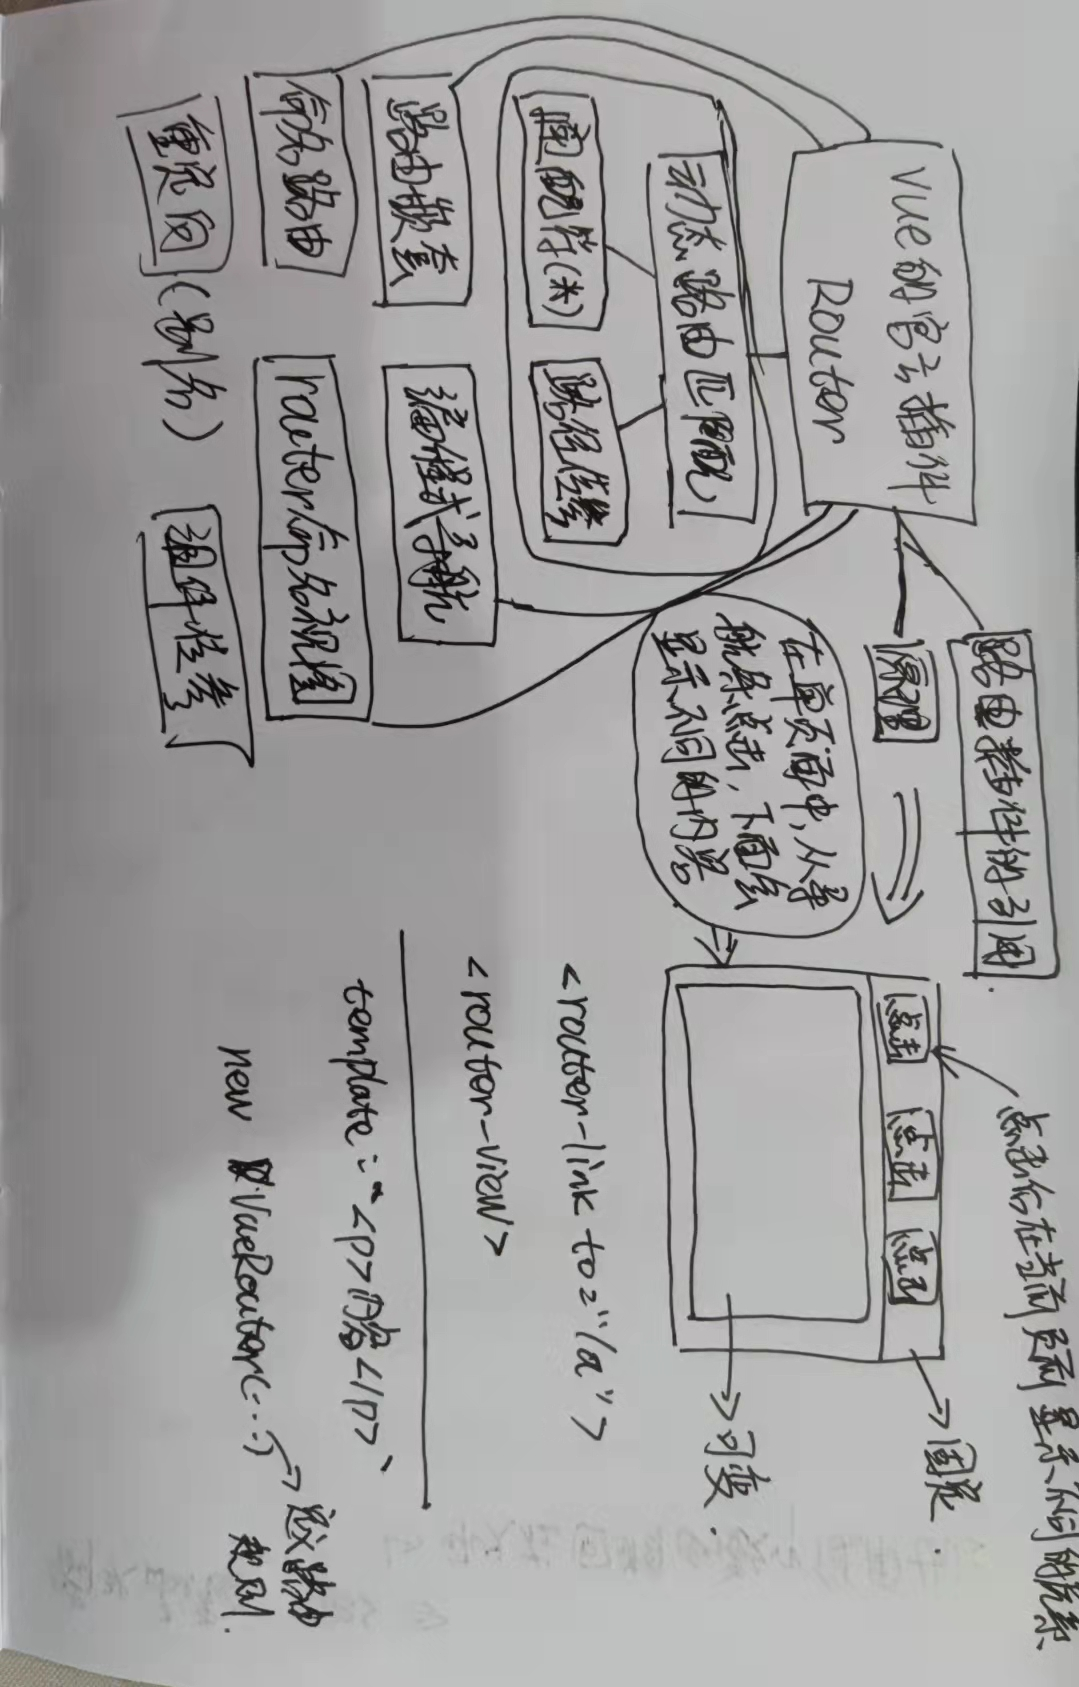 Vue的官方插件
Router
路由插件的引用
原理
动态路由匹配
通配符(*)
路径传参
在单页面中，从导
航条点击，下面会
显示不同的内容
点击后在当前页面显示不同的关系
点击
点击
点击
固定
可变
路由嵌套
编程式导航
命名路由
router命名视图
重定向(别名)
组件传参
<router-link to="/a">
<router-view>
template:`<p>内容</p>`
new VueRouter(...)
定义路由
规则